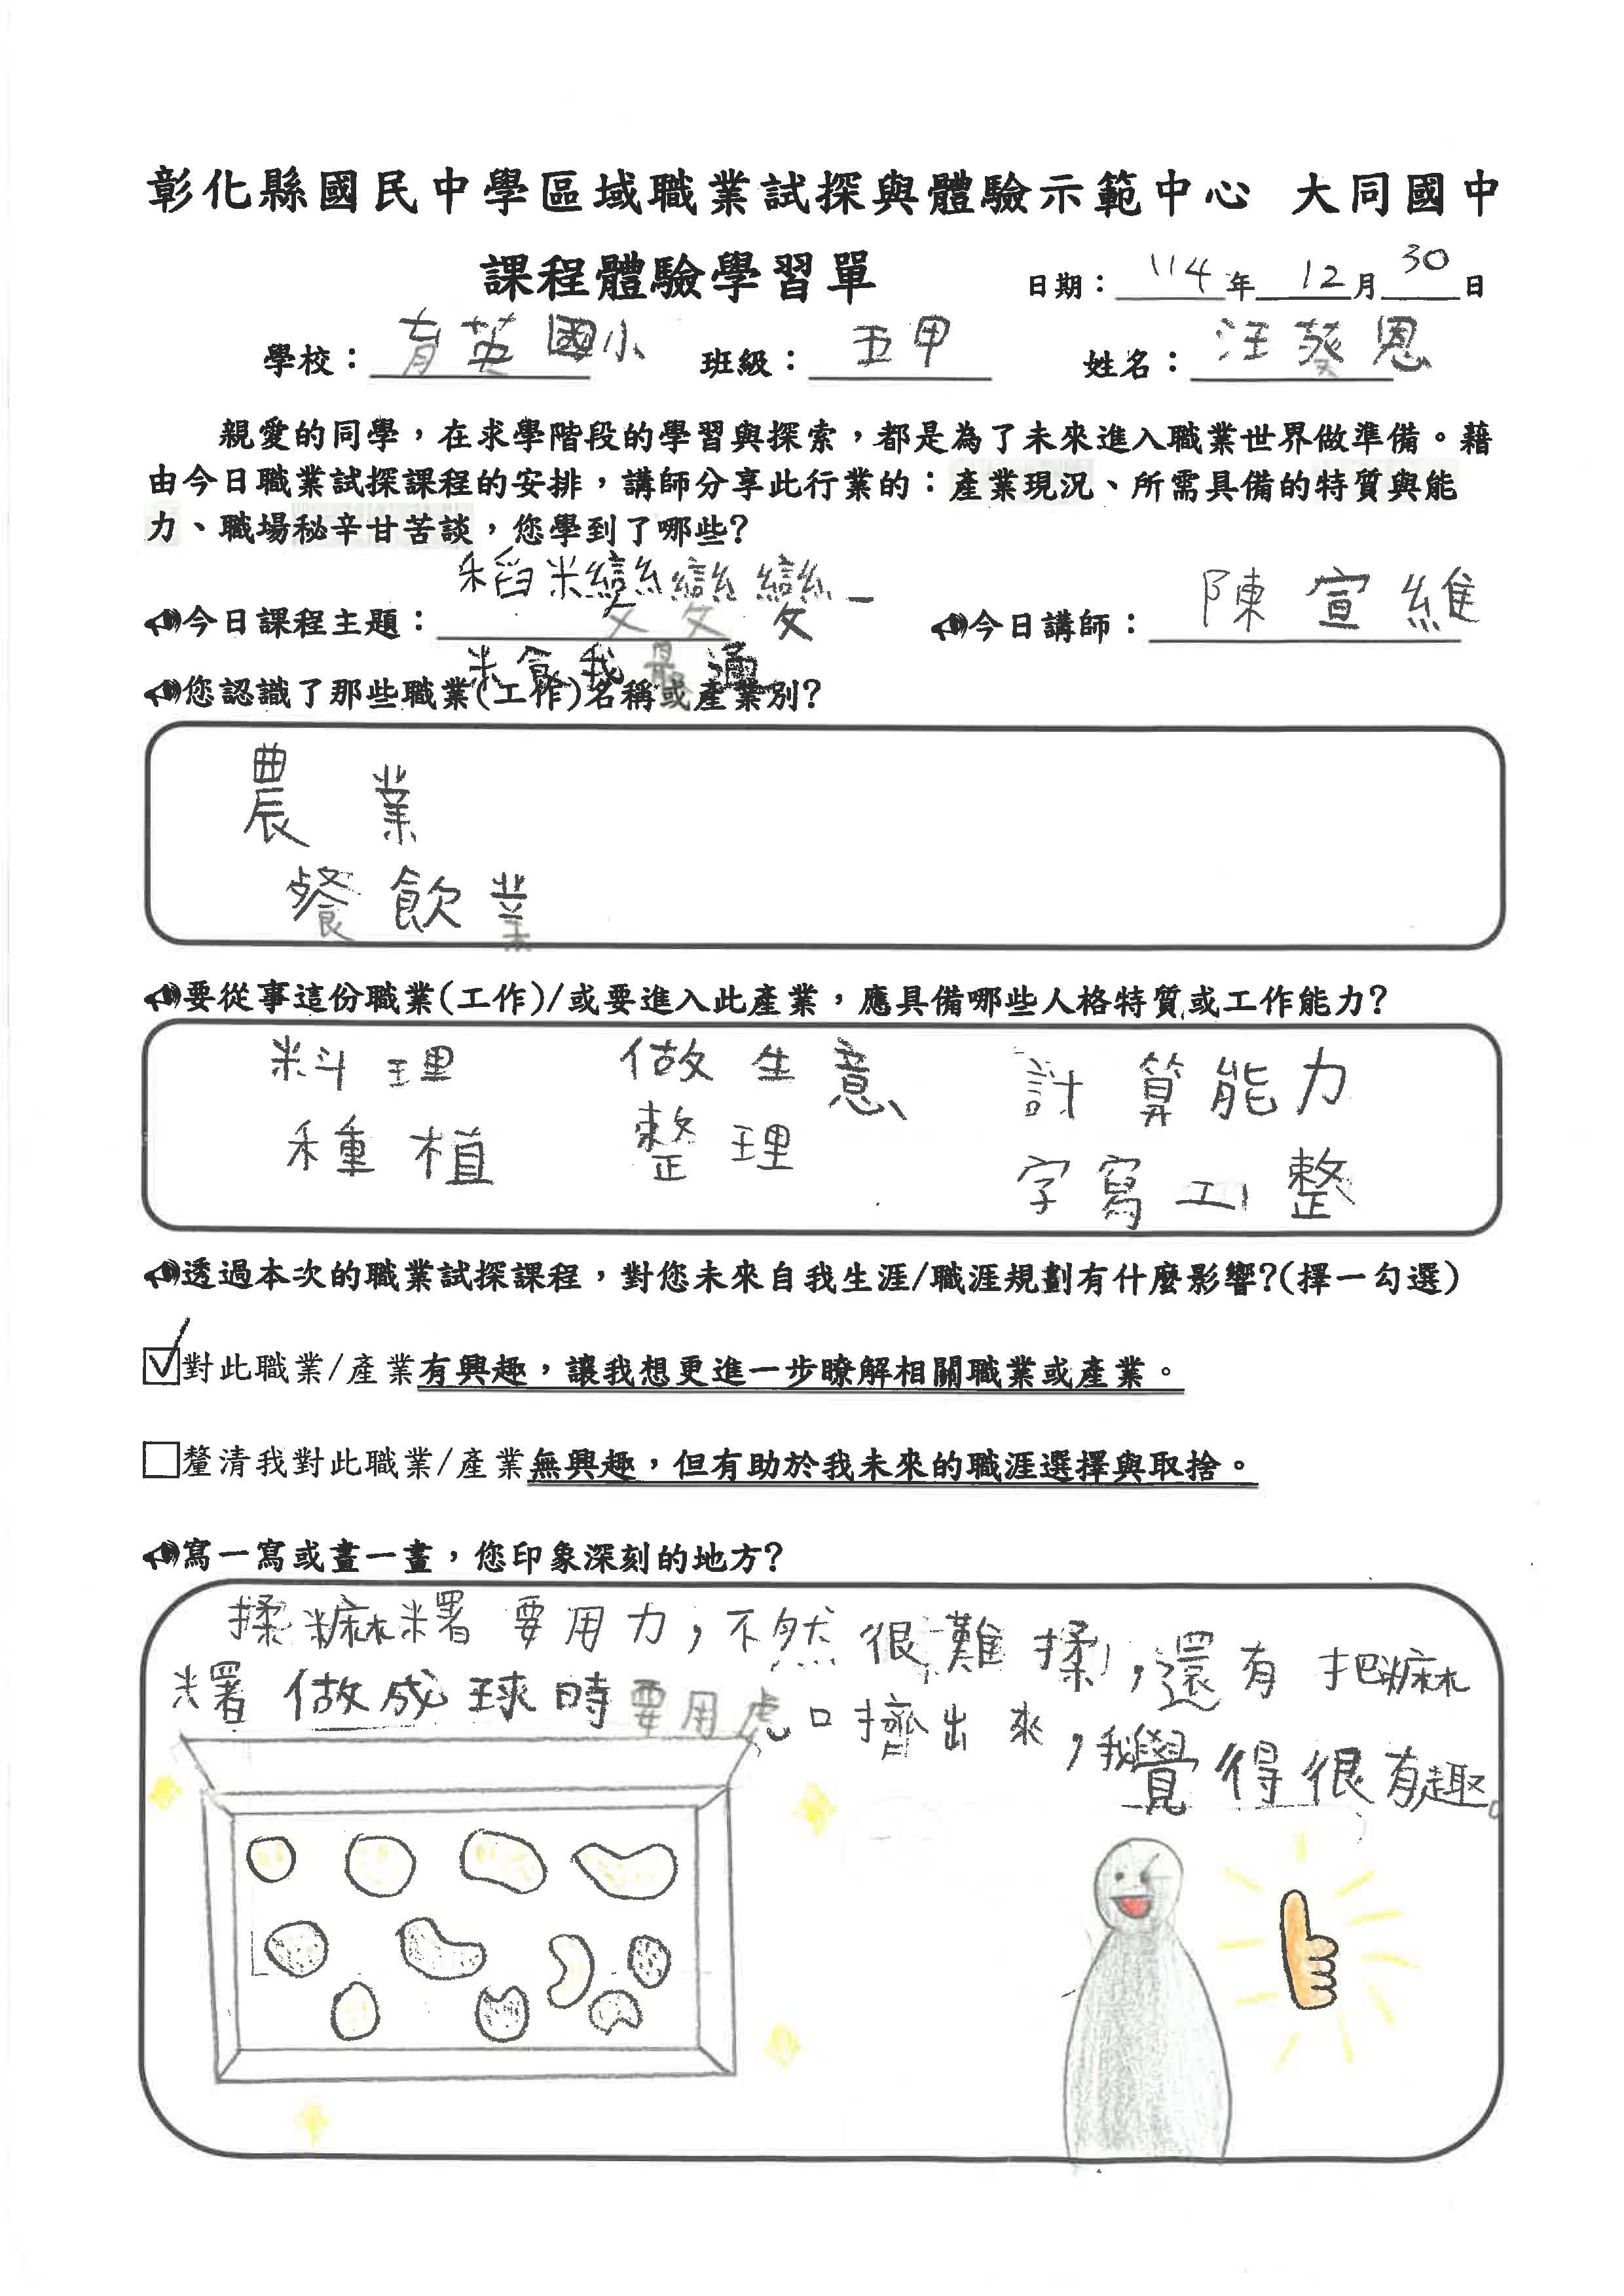 彰化縣國民中學區域職業試探與體驗示範中心 大同國中
課程體驗學習單 日期：114年12月30日
學校：育英國小 班級：五甲 姓名：汪 恩
親愛的同學，在求學階段的學習與探索，都是為了未來進入職業世界做準備。藉
由今日職業試探課程的安排，講師分享此行業的：產業現況、所需具備的特質與能
力、職場秘辛甘苦談，您學到了哪些？
今日課程主題：稻米變變變－ 今日講師：陳宣維
米食我最通
您認識了那些職業(工作)名稱或產業別？
農業
餐飲業
要從事這份職業(工作)/或要進入此產業，應具備哪些人格特質或工作能力？
料理 做生意 計算能力
種植 整理 字寫工整
透過本次的職業試探課程，對您未來自我生涯/職涯規劃有什麼影響？(擇一勾選)
☑對此職業/產業有興趣，讓我想更進一步瞭解相關職業或產業。
□釐清我對此職業/產業無興趣，但有助於我未來的職涯選擇與取捨。
寫一寫或畫一畫，您印象深刻的地方？
揉糜糬要用力，不然很難揉，還有把糜
糬做成球時要用虎口擠出來，我覺得很有趣。